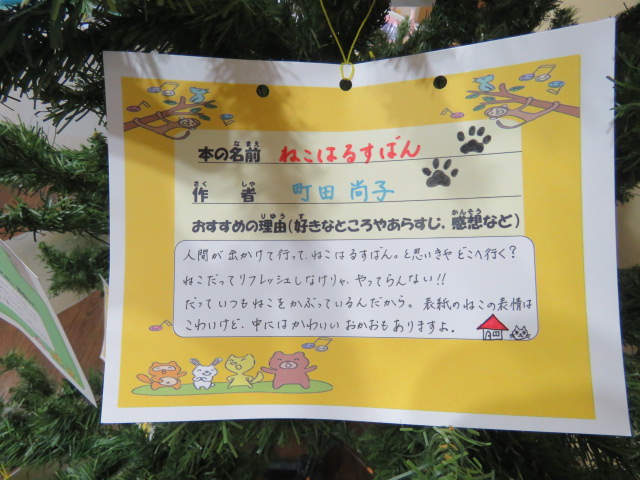 本の名前 ねこはるすばん
作者 町田 尚子
おすすめの理由(好きなところやあらすじ、感想など)
人間が出かけて行って、ねこはるすばん。と思いきや どこへ行く?
ねこだってリフレッシュしなけりゃ、やってらんない!!
だっていつもねこをかぶっているんだから。 表紙のねこの表情は
こわいけど、中にはかわいい おかおもありますよ。